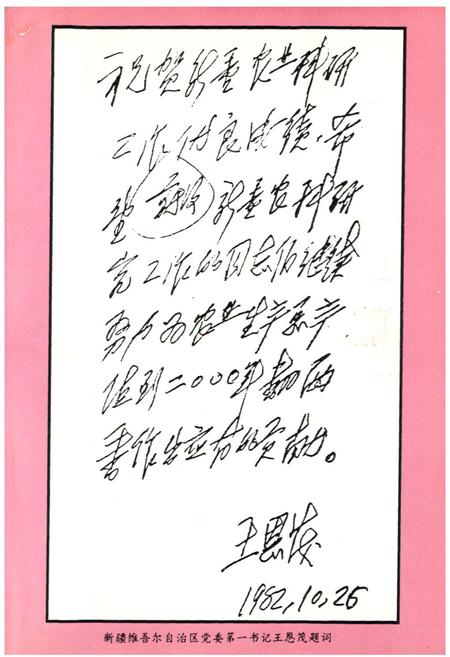 祝贺新疆农业科研
工作优良成绩，希
望 新疆农科研
究工作的同志们继续
努力为农业生产总产
值到二〇〇〇年翻两
番作出应有的贡献。
王恩茂
1982,10,26
新疆维吾尔自治区党委第一书记王恩茂题词